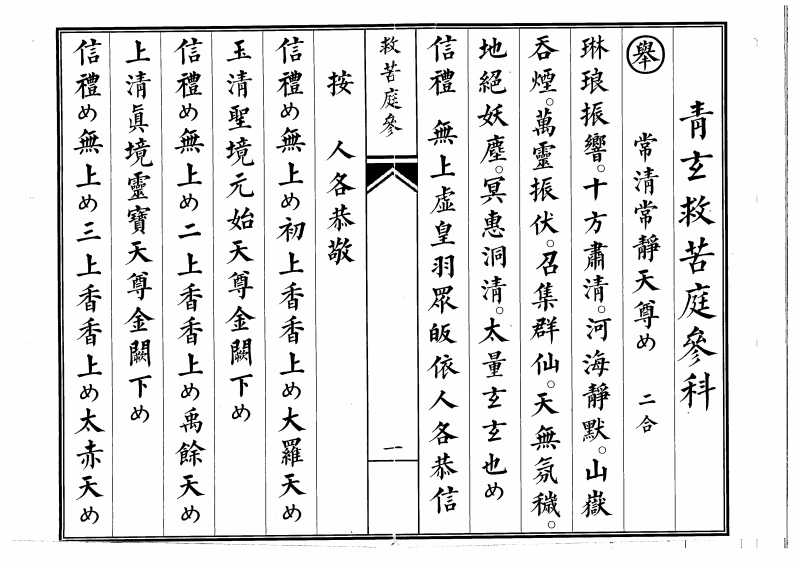 青玄救苦庭參科
擧 常清常靜天尊め 二合
琳琅振響。十方肅清。河海靜默。山嶽
吞煙。萬靈振伏。召集群仙。天無氛穢。
地絕妖塵。冥惠洞清。太量玄玄也め
信禮 無上虛皇羽眾皈依人各恭信
救苦庭參 一
按 人各恭敬
信禮め無上め初上香香上め大羅天め
玉清聖境元始天尊金闕下め
信禮め無上め二上香香上め禹餘天め
上清眞境靈寶天尊金闕下め
信禮め無上め三上香香上め太赤天め